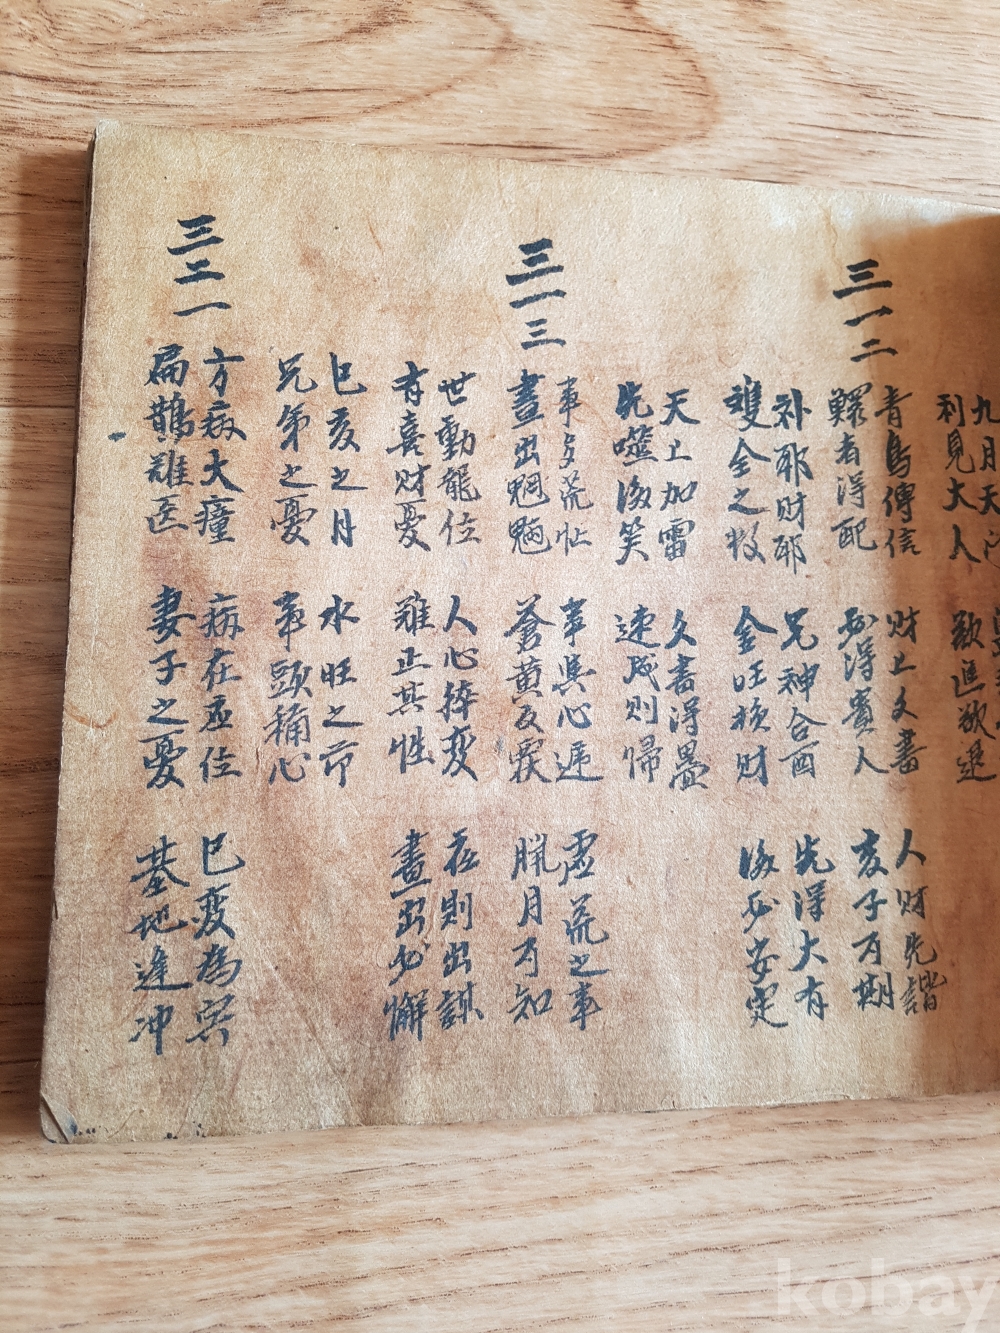 九月天
利見大人
歡進欲退
三一二
青鳥傳信 財上文書 人財先諧
鰥者得配 必得貴人 亥子可期
補耶財耶 兄神合酉 先得大有
雙全之 金旺 財 後必安定
天上加雷 久書得
先噬後笑 速成則歸
三一三
事多荒忙 事與心違 虛荒之事
晝出魍魎 蒼黃反 臘月可知
世動 位 人心猝変 在則出謀
有喜財憂 難正其性 晝出必懈
巳亥之月 水旺之节
兄弟之憂 事頭稱心
三二一
方病大瘇 病在 位 巳変為巽
扁鵲难医 妻子之憂 基地逢冲
kobay